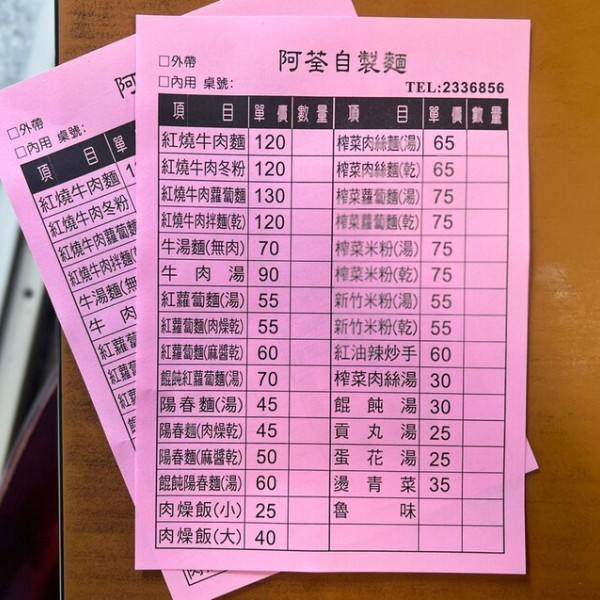 □外帶
□內用 桌號：
阿荃自製麵
TEL:2336856
項 目 單價 數量 項 目 單價 數量
紅燒牛肉麵 120 榨菜肉絲麵(湯) 65
紅燒牛肉冬粉 120 榨菜肉絲麵(乾) 65
紅燒牛肉蘿蔔麵 130 榨菜蘿蔔麵(湯) 75
紅燒牛肉拌麵(乾) 120 榨菜蘿蔔麵(乾) 75
牛湯麵(無肉) 70 榨菜米粉(湯) 75
牛肉湯 90 榨菜米粉(乾) 75
紅蘿蔔麵(湯) 55 新竹米粉(湯) 55
紅蘿蔔麵(肉燥乾) 55 新竹米粉(乾) 55
紅蘿蔔麵(麻醬乾) 60 紅油辣炒手 60
餛飩紅蘿蔔麵(湯) 70 榨菜肉絲湯 30
陽春麵(湯) 45 餛飩湯 30
陽春麵(肉燥乾) 45 貢丸湯 25
陽春麵(麻醬乾) 50 蛋花湯 25
餛飩陽春麵(湯) 60 燙青菜 35
肉燥飯(小) 25 魯味
肉燥飯(大) 40
□外帶
□內用 桌號：
阿
項 目 單
紅燒牛肉麵 1
紅燒牛肉冬粉
紅燒牛肉蘿蔔麵
紅燒牛肉拌麵
牛湯麵(無
牛 肉
紅蘿蔔
紅蘿蔔
紅蘿